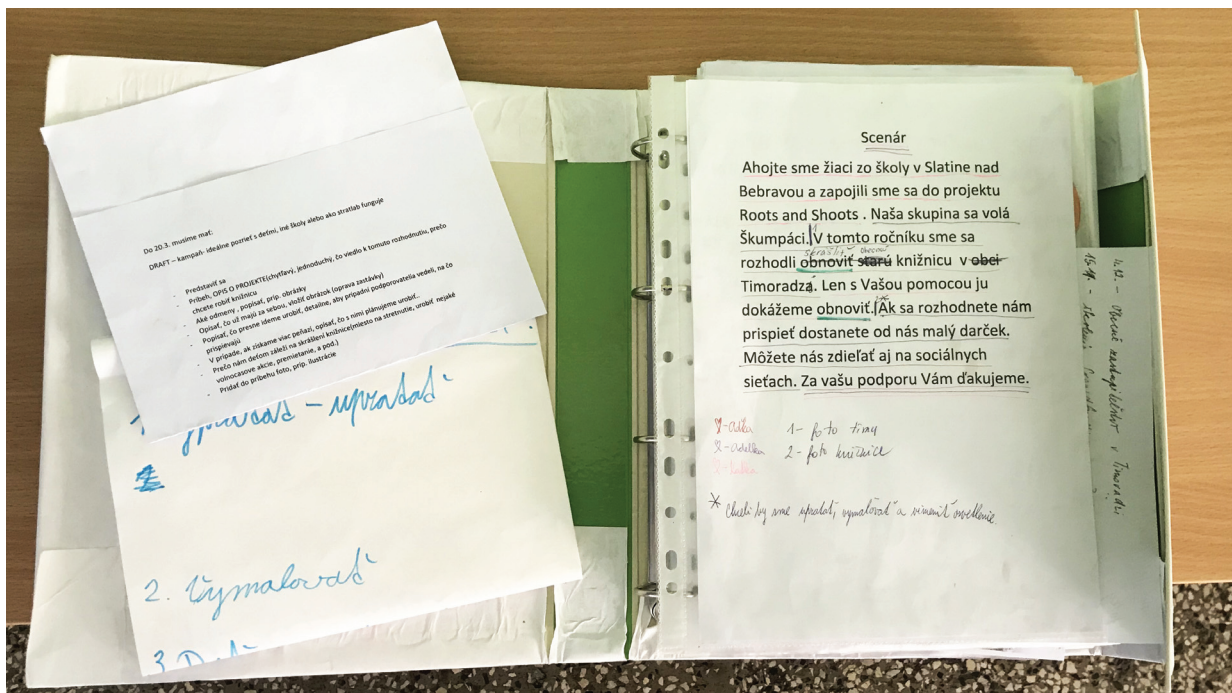 Do 20.3. musíme mať:
DRAFT – kampaň- ideálne pozrieť s deťmi, iné školy alebo ako stratlab funguje
- Predstaviť sa
- Príbeh, OPIS O PROJEKTE(chytľavý, jednoduchý, čo viedlo k tomuto rozhodnutiu, prečo
chcete robiť knižnicu
- Aké odmeny , popísať, príp. obrázky
- Opísať, čo už majú za sebou, vložiť obrázok (oprava zastávky)
- Popísať, čo presne ideme urobiť, detailne, aby prípadní podporovatelia vedeli, na čo
prispievajú
- V prípade, ak získame viac peňazí, opísať, čo s nimi plánujeme urobiť..
- Prečo nám deťom záleží na skrášlení knižnice(miesto na stretnutie, urobiť nejaké
volnocasove akcie, premietanie, a pod.)
- Pridať do príbehu foto, príp. ilustrácie
- upratať
2. Vymalovať
3.
Scenár
Ahojte sme žiaci zo školy v Slatine nad
Bebravou a zapojili sme sa do projektu
Roots and Shoots . Naša skupina sa volá
Škumpáci. V tomto ročníku sme sa
skrášliť obecnú
rozhodli obnoviť starú knižnicu v obci
Timoradza. Len s Vašou pomocou ju
dokážeme obnoviť.* Ak sa rozhodnete nám
prispieť dostanete od nás malý darček.
Môžete nás zdieľať aj na sociálnych
sieťach. Za vašu podporu Vám ďakujeme.
- Aďka 1- foto tímu
- Adelka 2- foto knižnice
* Chceli by sme upratať, vymaľovať a vimeniť osvetlenie.
11.12. – Obecné zastupiteľstvo v Timoradzi